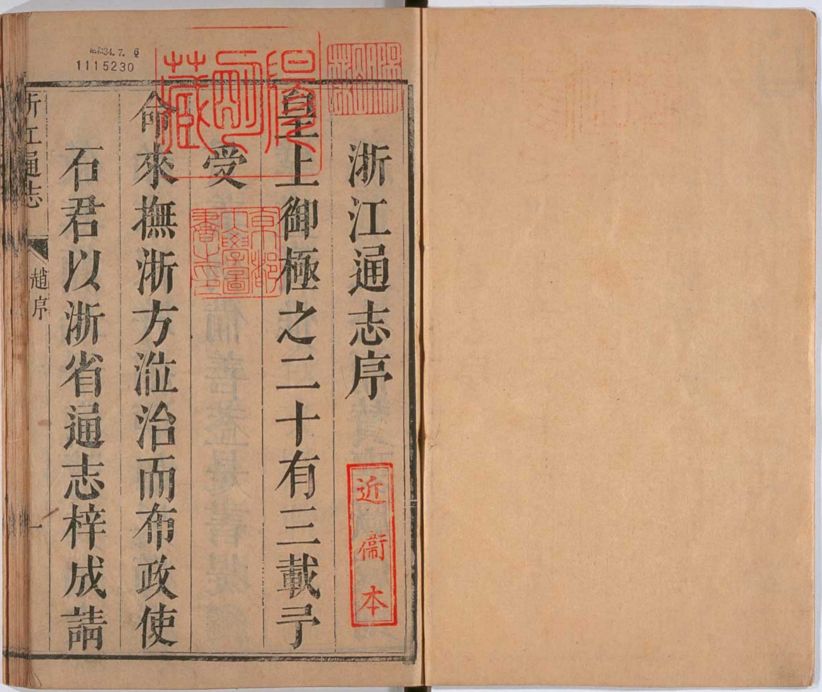 浙江通志序
皇上御極之二十有三載予
受
命來撫浙方涖治而布政使
石君以浙省通志梓成請
浙江通志
趙序
一
近衞本
京都
大學圖
書之印
1115230